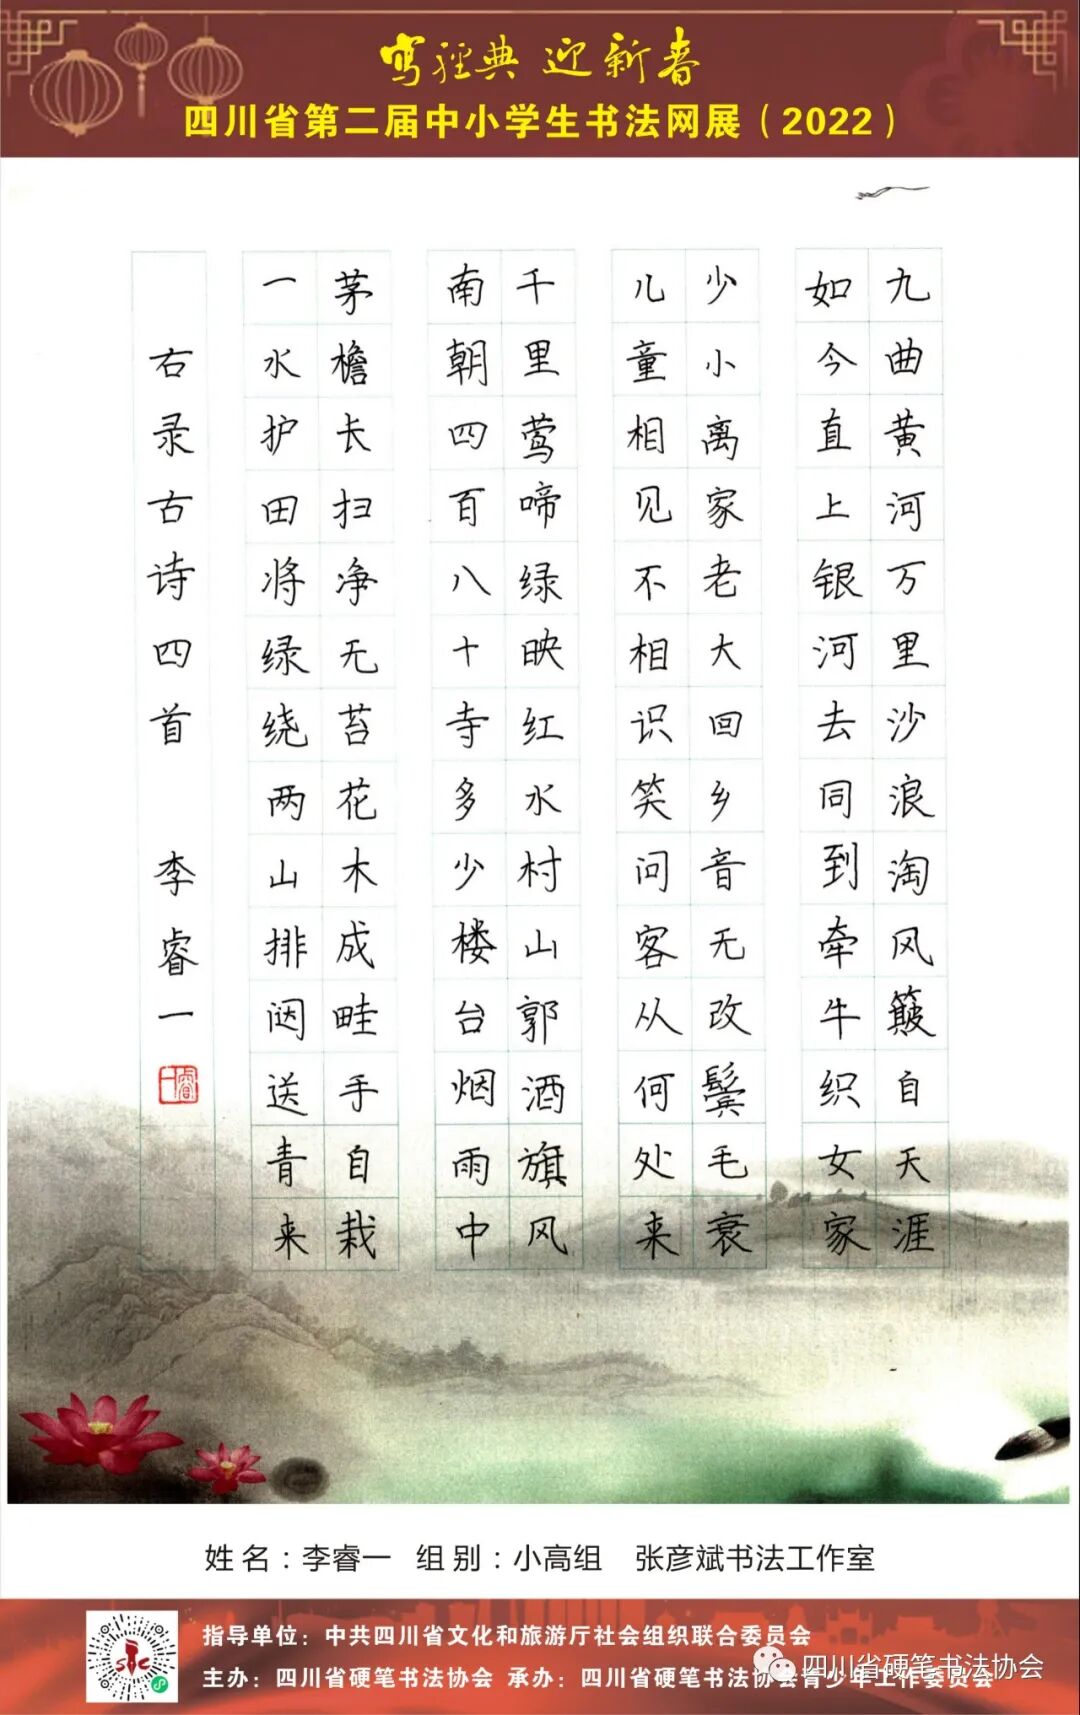 写经典 迎新春
四川省第二届中小学生书法网展（2022）
九曲黄河万里沙浪淘风簸自天涯
如今直上银河去同到牵牛织女家
少小离家老大回乡音无改鬓毛衰
儿童相见不相识笑问客从何处来
千里莺啼绿映红水村山郭酒旗风
南朝四百八十寺多少楼台烟雨中
茅檐长扫净无苔花木成畦手自栽
一水护田将绿绕两山排闼送青来
右录古诗四首 李睿一
姓名：李睿一 组别：小高组 张彦斌书法工作室
指导单位：中共四川省文化和旅游厅社会组织联合委员会
主办：四川省硬笔书法协会 承办：四川省硬笔书法协会青少年工作委员会
四川省硬笔书法协会